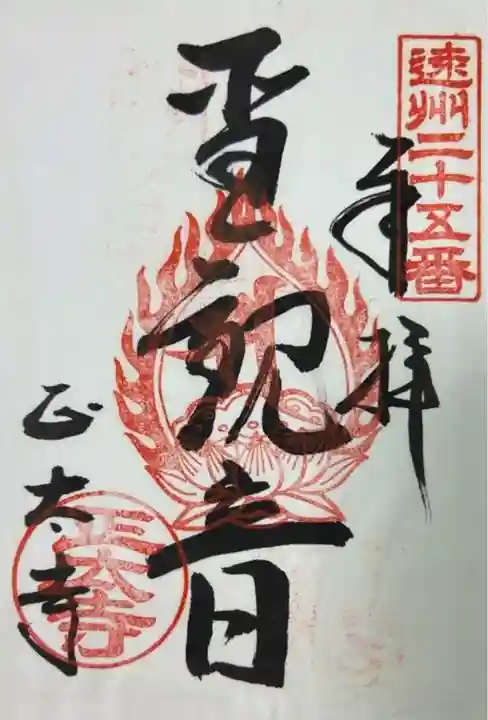 遠州二十五番
奉拝
聖観音
正太寺
正太寺